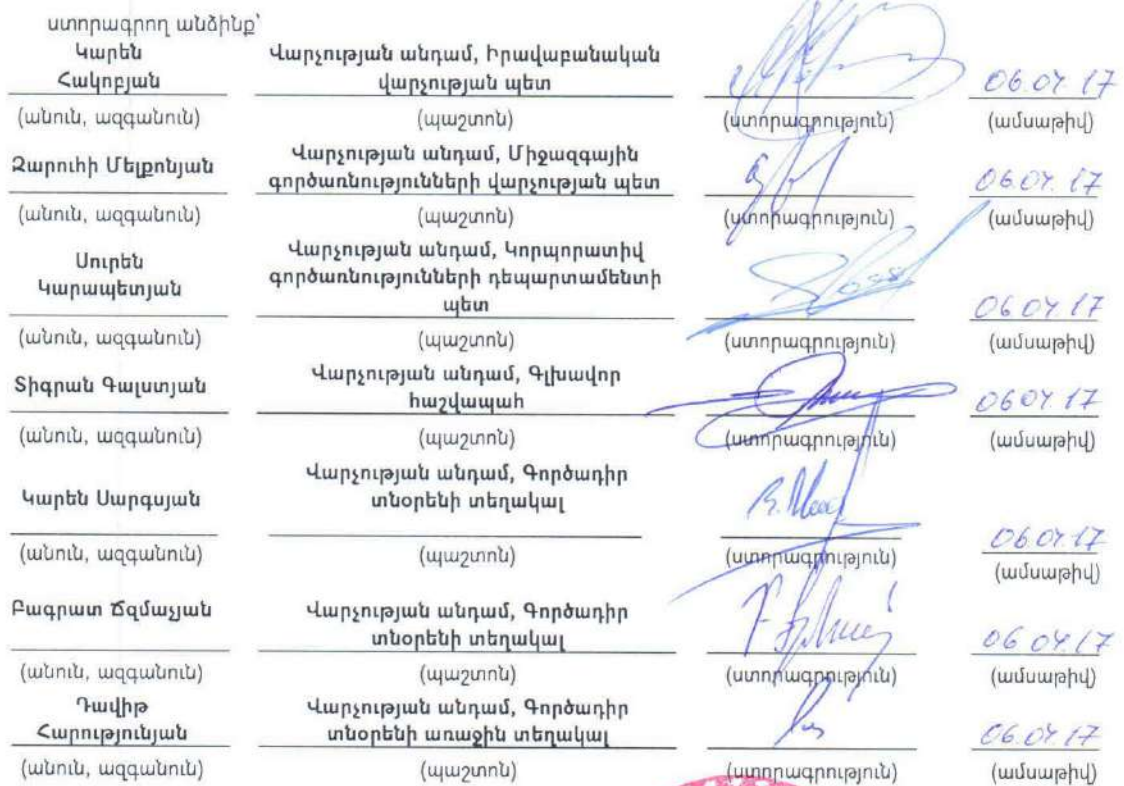 ստորագրող անձինք՝
Կարեն
Հակոբյան
Վարչության անդամ, Իրավաբանական
վարչության պետ
06.04.17
(անուն, ազգանուն) (պաշտոն) (ստորագրություն) (ամսաթիվ)
Զարուհի Մելքոնյան
Վարչության անդամ, Միջազգային
գործառնությունների վարչության պետ
06.04.17
(անուն, ազգանուն) (պաշտոն) (ստորագրություն) (ամսաթիվ)
Սուրեն
Կարապետյան
Վարչության անդամ, Կորպորատիվ
գործառնությունների դեպարտամենտի
պետ
06.04.17
(անուն, ազգանուն) (պաշտոն) (ստորագրություն) (ամսաթիվ)
Տիգրան Գալստյան
Վարչության անդամ, Գլխավոր
հաշվապահ
06.04.17
(անուն, ազգանուն) (պաշտոն) (ստորագրություն) (ամսաթիվ)
Կարեն Սարգսյան
Վարչության անդամ, Գործադիր
տնօրենի տեղակալ
06.04.17
(անուն, ազգանուն) (պաշտոն) (ստորագրություն) (ամսաթիվ)
Բագրատ Ճզմաչյան
Վարչության անդամ, Գործադիր
տնօրենի տեղակալ
06.04.17
(անուն, ազգանուն) (պաշտոն) (ստորագրություն) (ամսաթիվ)
Դավիթ
Հարությունյան
Վարչության անդամ, Գործադիր
տնօրենի առաջին տեղակալ
06.04.17
(անուն, ազգանուն) (պաշտոն) (ստորագրություն) (ամսաթիվ)